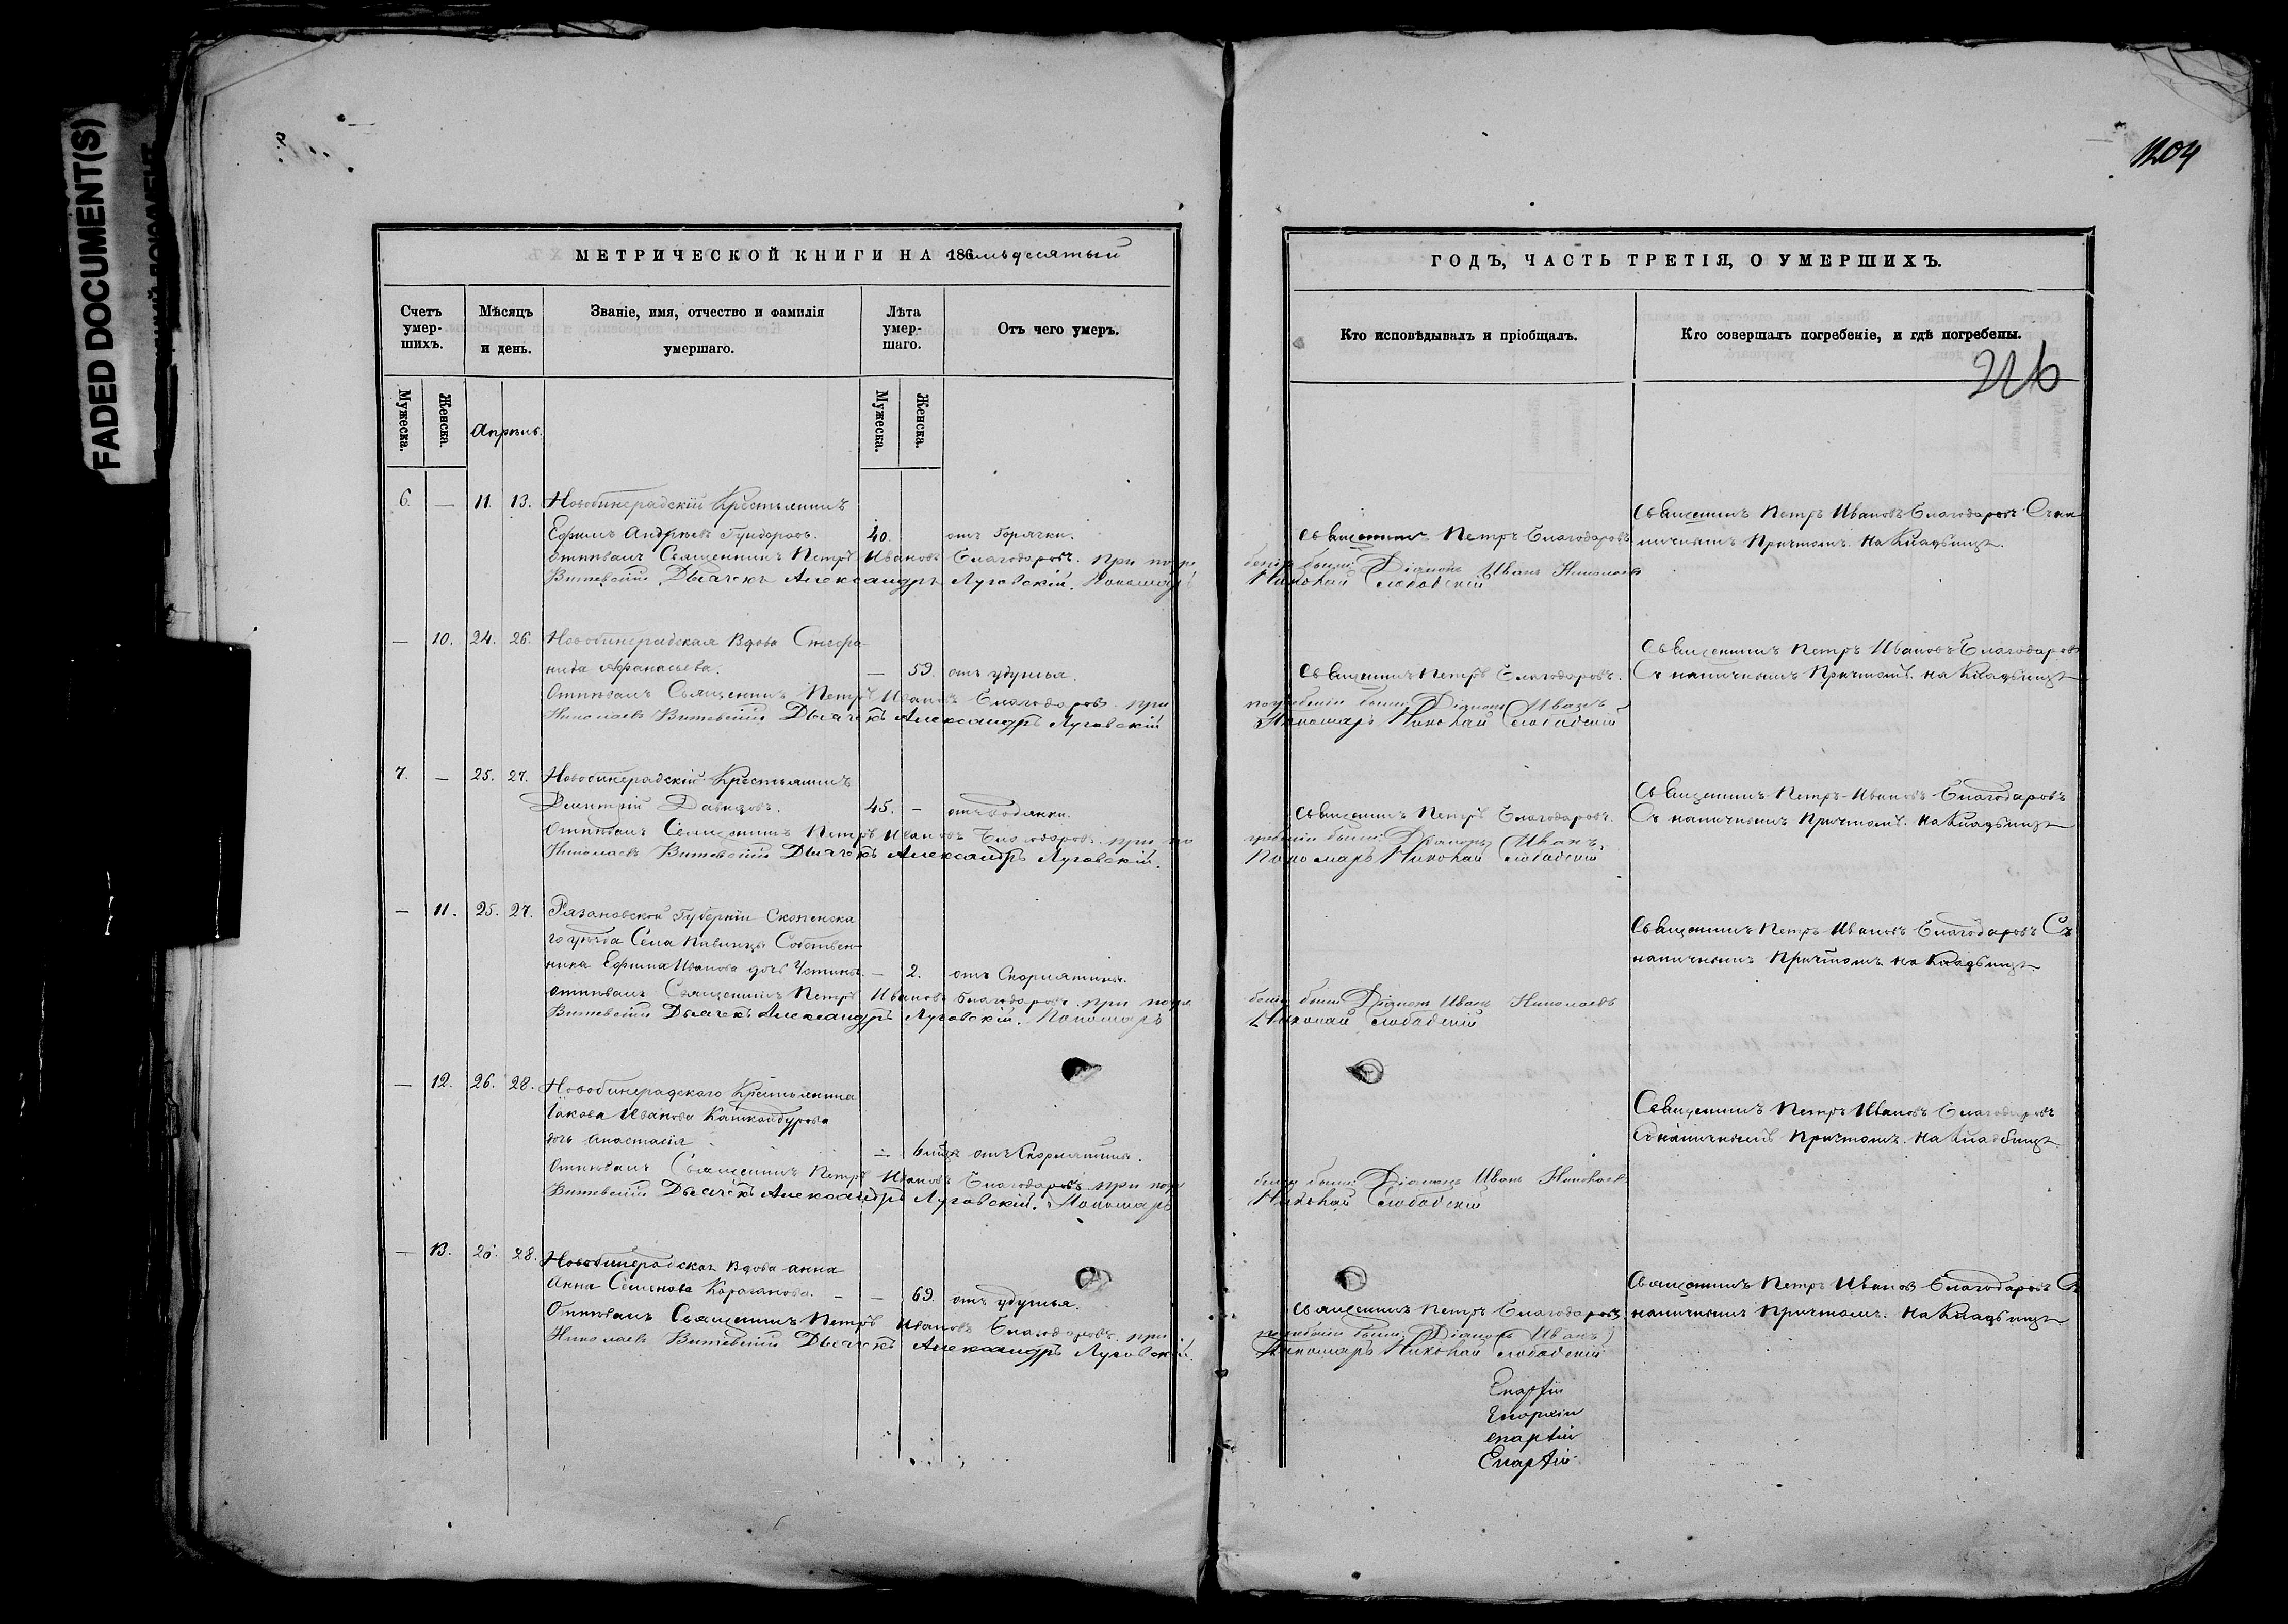 FADED DOCUMENT(S)
1204
МЕТРИЧЕСКОЙ КНИГИ НА 186 семьдесятый
ГОДЪ, ЧАСТЬ ТРЕТІЯ, О УМЕРШИХЪ.
Счетъ умер-шихъ.
Мѣсяцъ и день.
Званіе, имя, отчество и фамилія умершаго.
Лѣта умер-шаго.
Отъ чего умеръ.
Кто исповѣдывалъ и пріобщалъ.
Кто совершалъ погребеніе, и гдѣ погребены.
226
Мужеска.
Женска.
Апрѣль.
Мужеска.
Женска.
6. — 11. 13. Крестьянинъ
Ефимъ Андреевъ 40. отъ Горячки.
отпѣвалъ Священникъ Петръ Ивановъ Благодаровъ. при погре
Витевскій Дьячекъ Александръ Луговскій. Пономарь
Священникъ Петръ Благодаровъ.
бени были: Діаконъ Иванъ Николаевъ
Николай Слободскій
Священникъ Петръ Ивановъ Благодаровъ Съ на
личнымъ Причтомъ. на Кладбищѣ.
— 10. 24. 26. Вдова Стефа-
нида Афанасьева. — 59. отъ удушья.
Отпѣвалъ Священникъ Петръ Ивановъ Благодаровъ. при
Николаевъ Витевскій Дьячекъ Александръ Луговскій
Священникъ Петръ Благодаровъ.
погребеніи были: Діаконъ Иванъ
Пономарь Николай Слободскій
Священникъ Петръ Ивановъ Благодаровъ
Съ наличнымъ Причтомъ. на Кладбищѣ
7. — 25. 27. Крестьянинъ
Димитрій Давыдовъ. 45. — отъ водянки.
Отпѣвалъ Священникъ Петръ Ивановъ Благодаровъ. при по
Николаевъ Витевскій Дьячекъ Александръ Луговскій.
Священникъ Петръ Благодаровъ.
гребеніи были: Діаконъ Иванъ
Пономарь Николай Слободскій
Священникъ Петръ Ивановъ Благодаровъ
Съ наличнымъ Причтомъ. на Кладбищѣ
— 11. 25. 27. Губерніи Скопинска
го уѣзда Села Собствен-
ника Ефима Иванова дочь — 2. отъ Скорлатины.
отпѣвалъ Священникъ Петръ Ивановъ Благодаровъ. при погре
Витевскій Дьячекъ Александръ Луговскій. Пономарь
бени были: Діаконъ Иванъ Николаевъ
Николай Слободскій
Священникъ Петръ Ивановъ Благодаровъ Съ
наличнымъ Причтомъ. на Кладбищѣ
— 12. 26. 28. Крестьянина
Іакова Иванова
дочь Анастасія — отъ Скорлатины.
Отпѣвалъ Священникъ Петръ Ивановъ Благодаровъ при погре
Витевскій Дьячекъ Александръ Луговскій. Пономарь
бени были: Діаконъ Иванъ Николаевъ
Николай Слободскій
Священникъ Петръ Ивановъ Благодаровъ
Съ наличнымъ Причтомъ. на Кладбищѣ
— 13. 26. 28. Вдова анна
Анна Семенова — — 69. отъ удушья.
Отпѣвалъ Священникъ Петръ Ивановъ Благодаровъ. при
Николаевъ Витевскій Дьячекъ Александръ Луговскій.
Священникъ Петръ Благодаровъ.
погребеніи были: Діаконъ Иванъ
Пономарь Николай Слободскій
Священникъ Петръ Ивановъ Благодаровъ Съ
наличнымъ Причтомъ. на Кладбищѣ
Епархіи